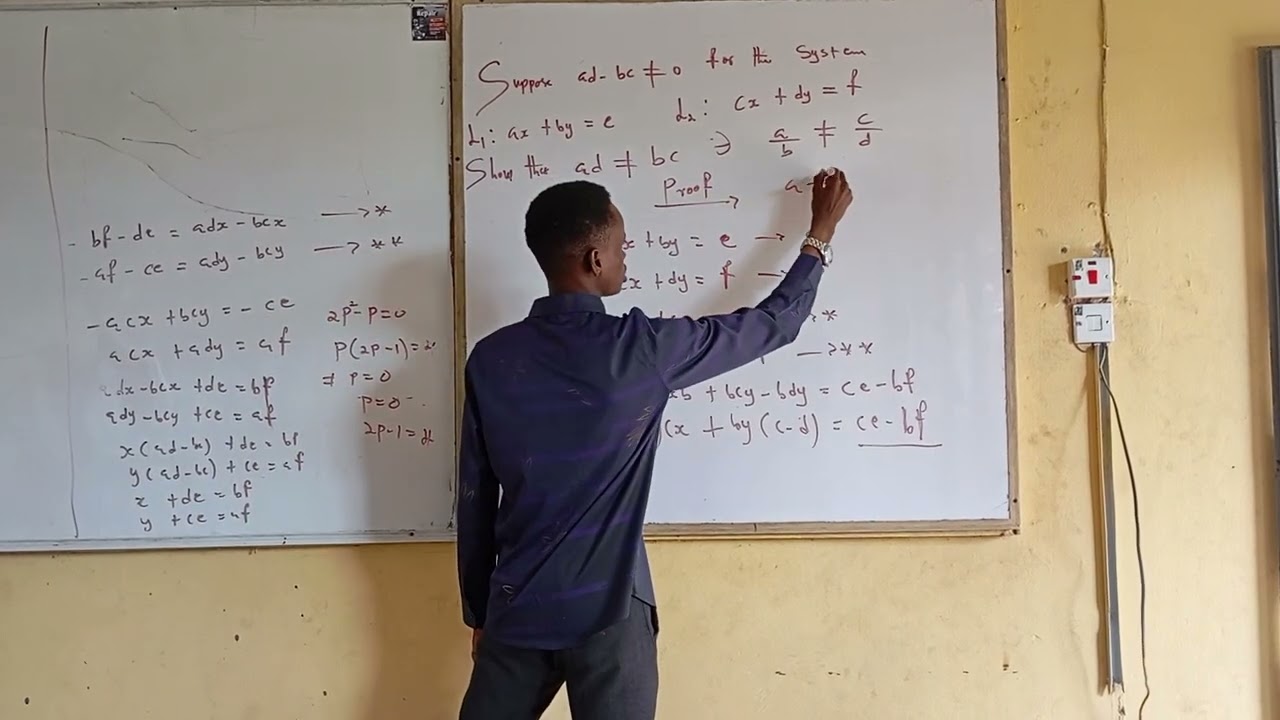 Repair
- bf - de = adx - bcx → *
- af - ce = ady - bcy → * *
- acx + bcy = - ce
acx + ady = af
adx - bcx + de = bf
ady - bcy + ce = af
x(ad - bc) + de = bf
y(ad - bc) + ce = af
x + de = bf
y + ce = af
2p² - p = 0
p(2p - 1) =
⇒ p = 0
p = 0
2p - 1 =
Suppose ad - bc ≠ 0 for the System
L₁: ax + by = e L₂: cx + dy = f
Show that ad ≠ bc ∋ a/b ≠ c/d
Proof a
x + by = e →
cx + dy = f →
*
→ * *
ab + bcy - bdy = ce - bf
(x + by(c - d) = ce - bf